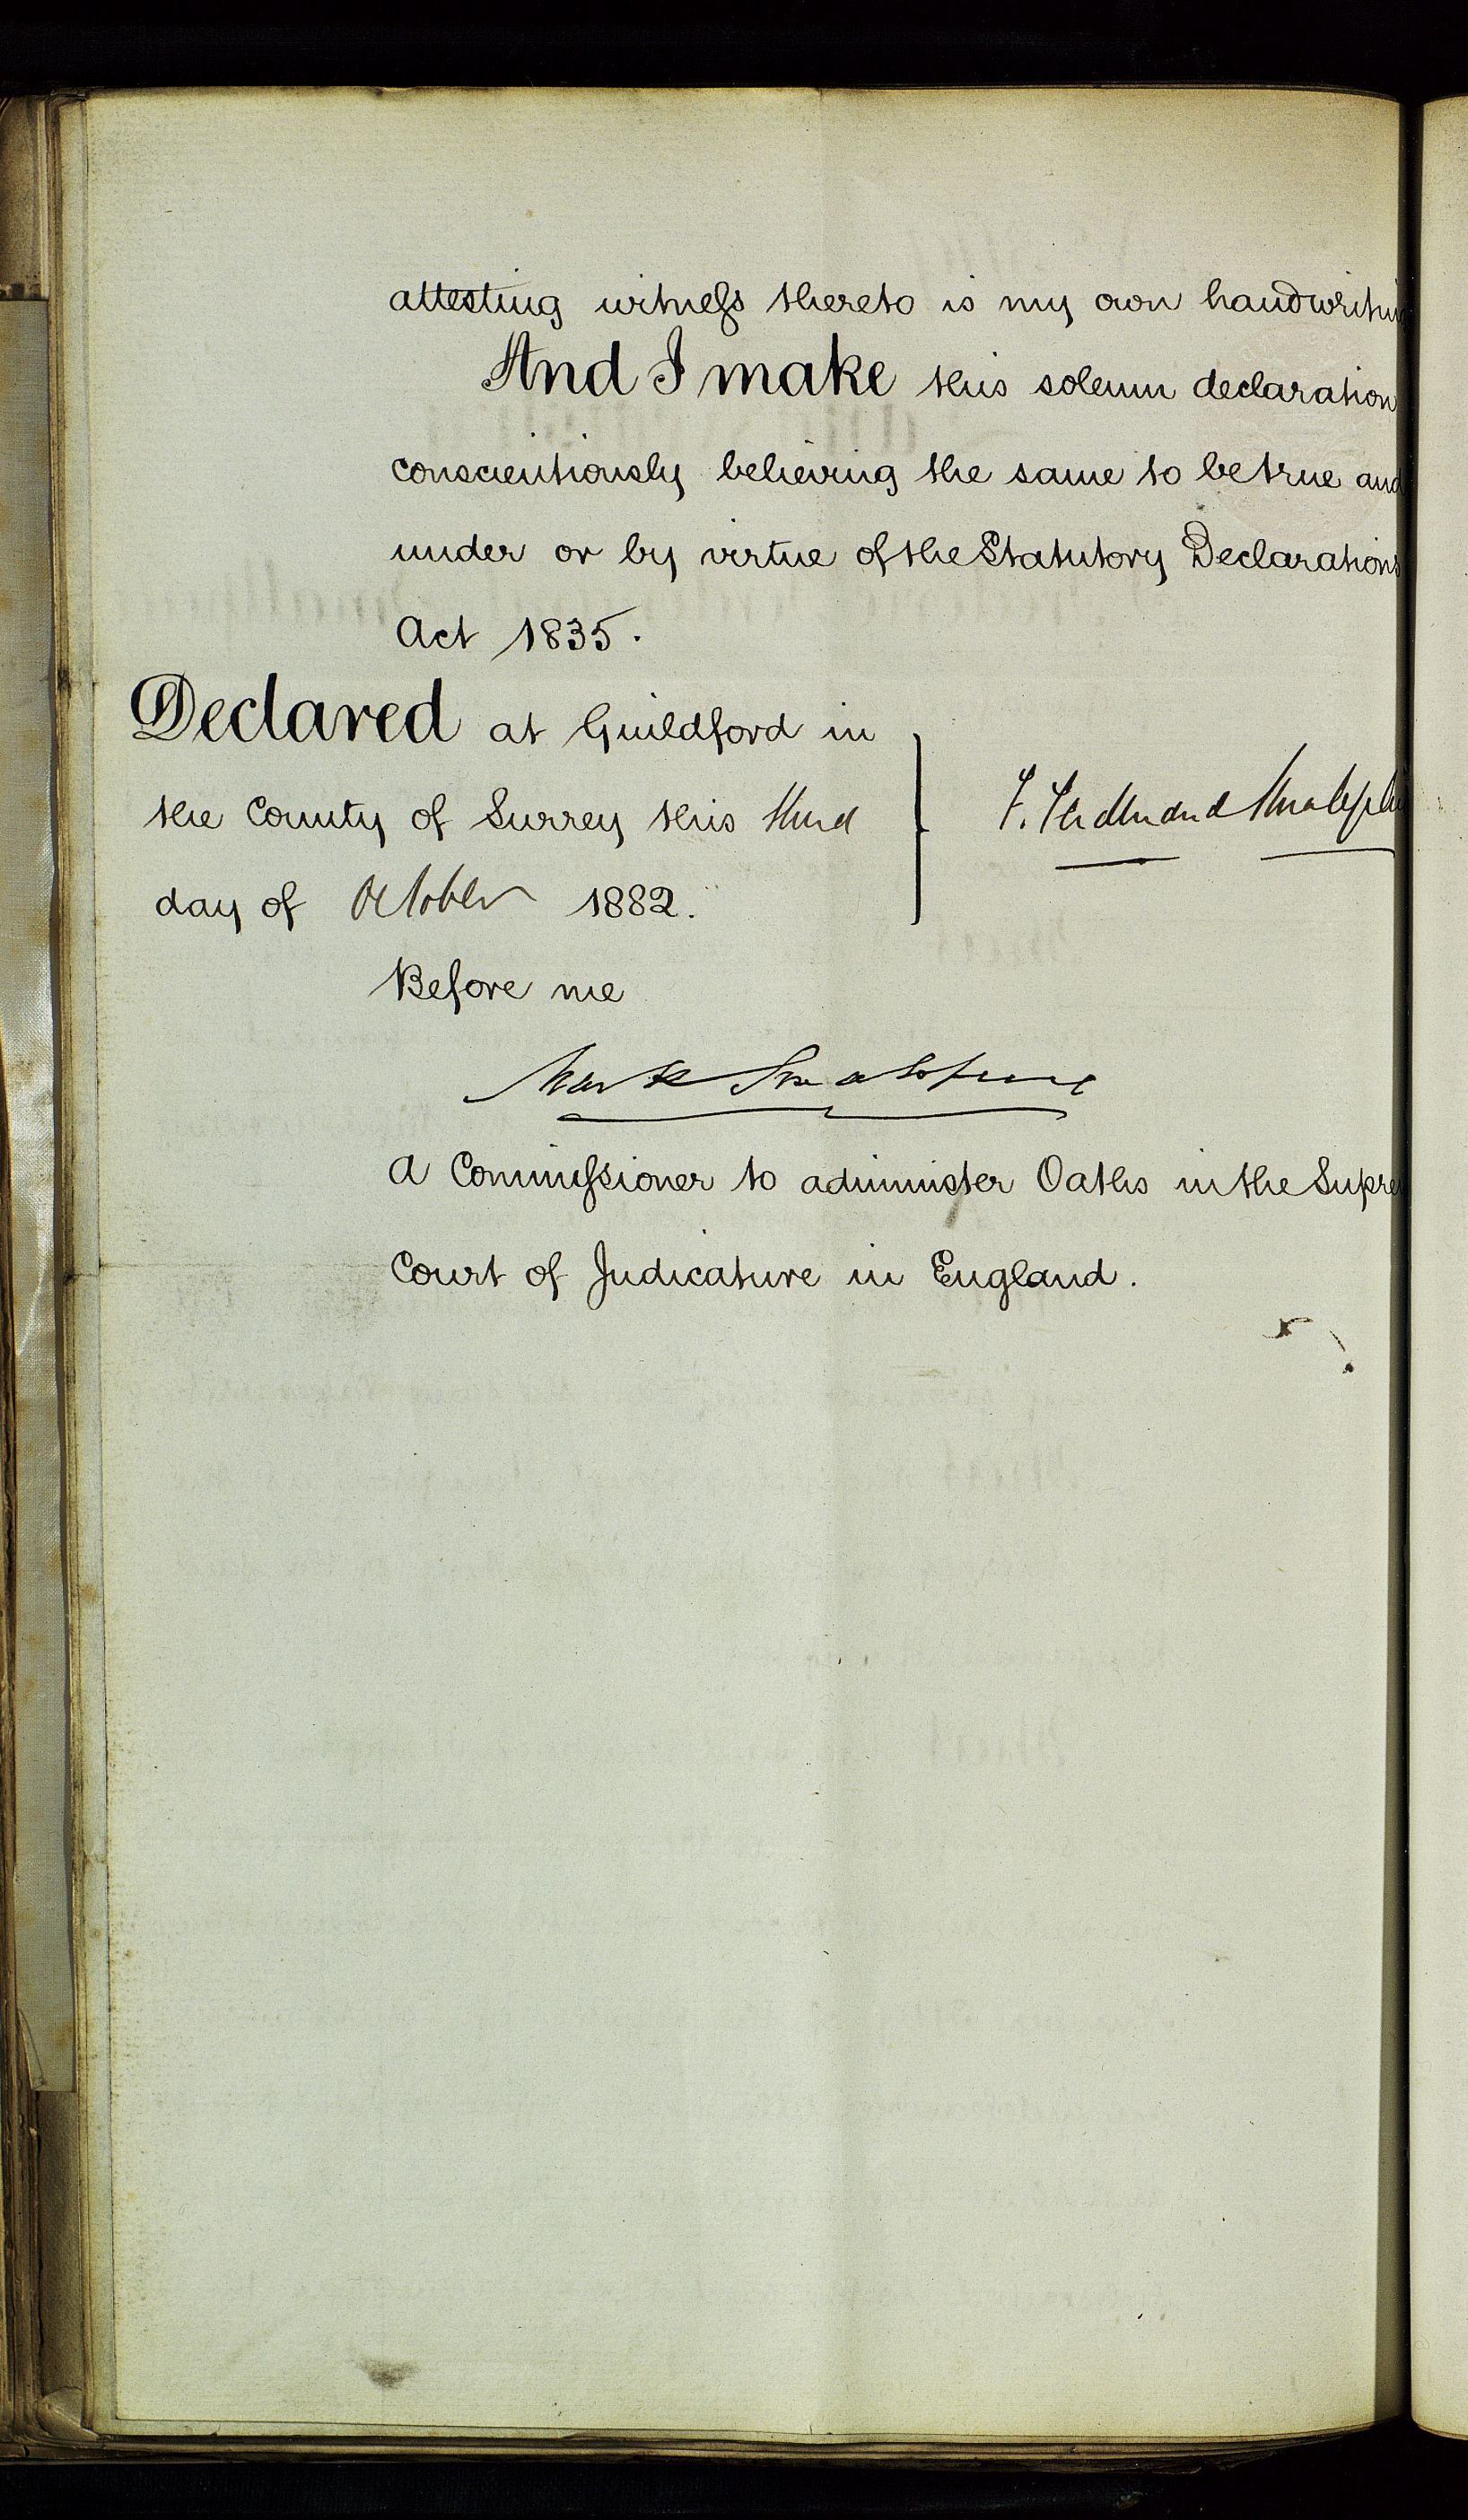 attesting witness thereto is my own handwritin
And I make this solemn declaration
conscientiously believing the same to be true and
under or by virtue of the Statutory Declarations
Act 1835.
Declared at Guildford in
the County of Surrey this third
day of October 1882.
F. Ferdinand Smallpiece
Before me
Mark Smallpiece
A Commissioner to administer Oaths in the Supre
Court of Judicature in England.